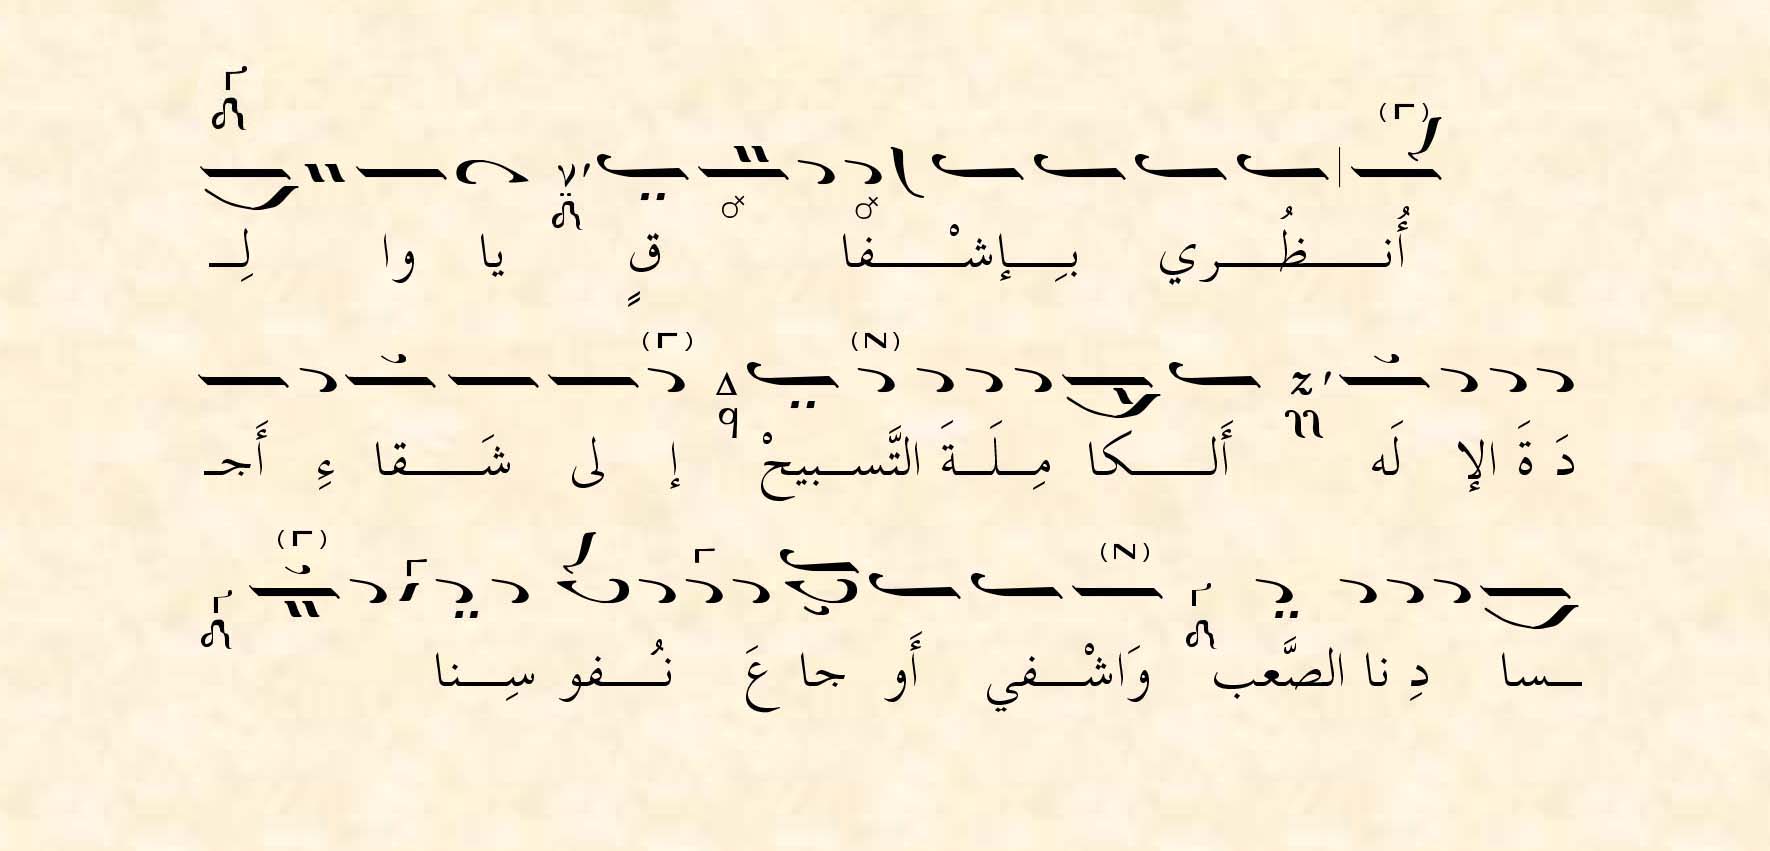 أُنــظُــري بــإشْــفا قٍ يا وا لِــ
دَ ةَ الإ لَه أَلــكا مِــلَــةَ التَّســبيحْ إ لى شَــقا ءِ أَجــ
ــسا دِ نا الصَّعب وَاشْــفي أَو جا عَ نُــفو سِــنا